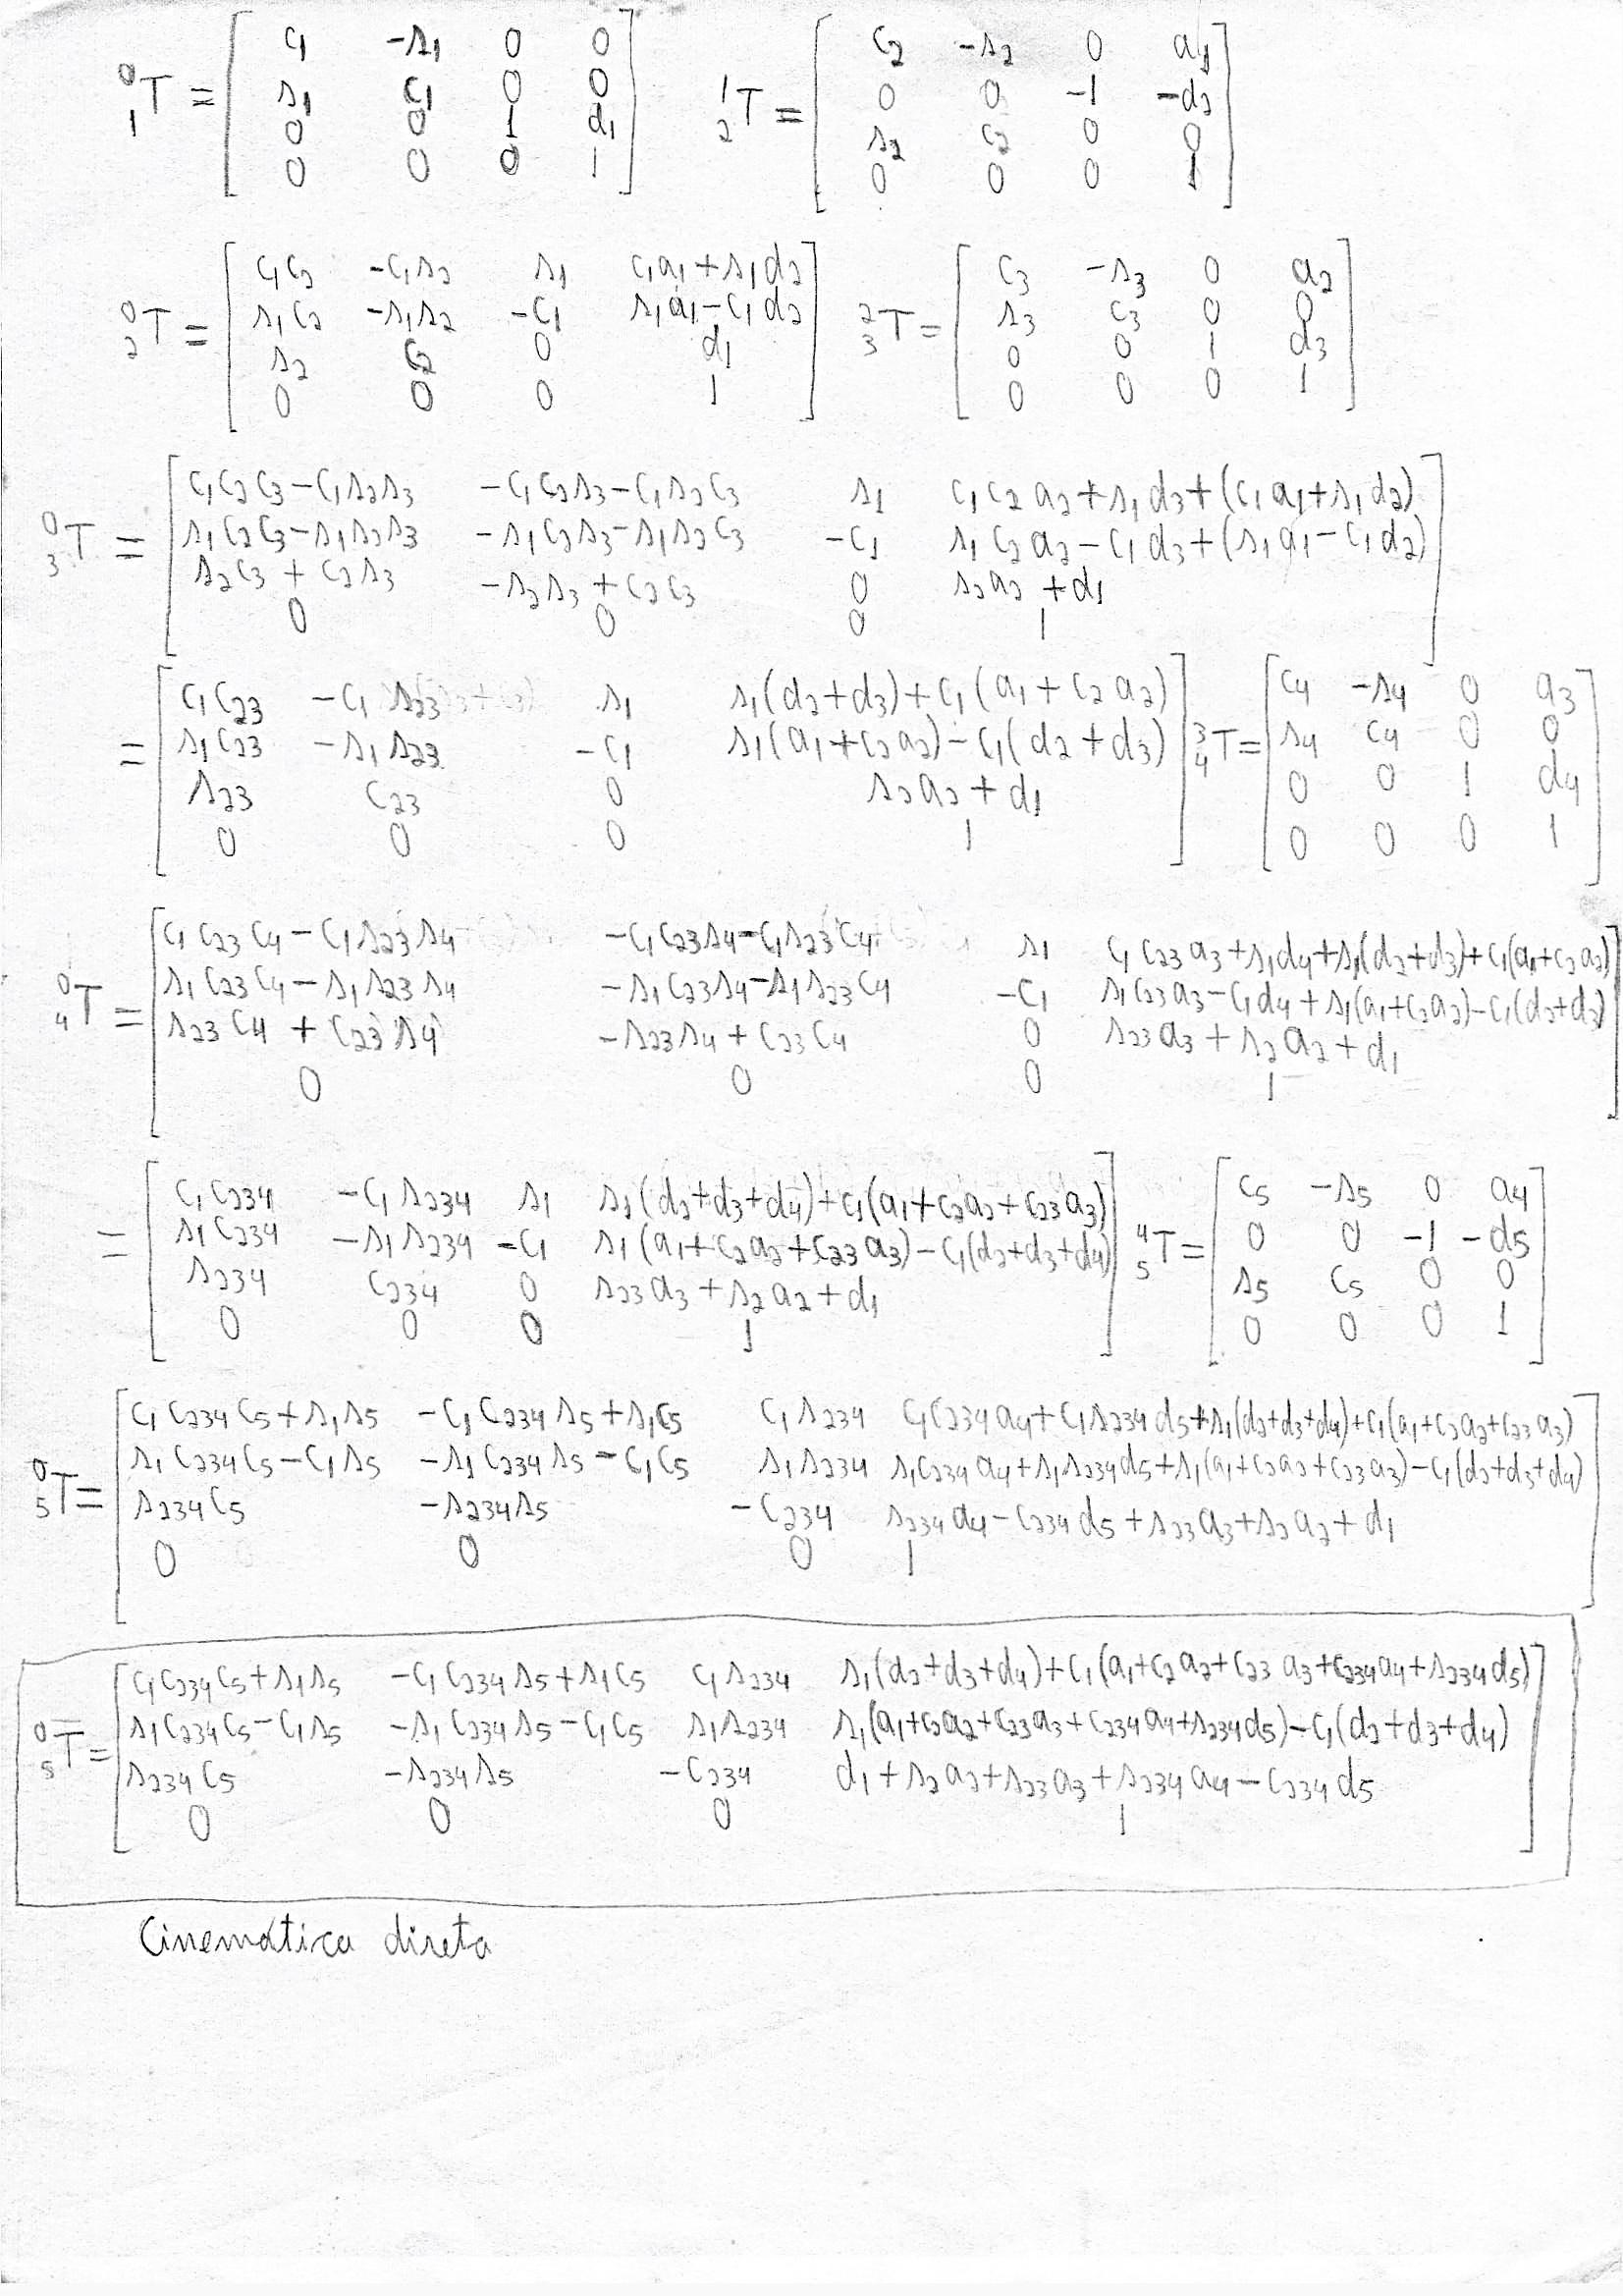 ⁰₁T = [ c₁ -s₁ 0 0 ¹₂T = [ c₂ -s₂ 0 a₁
s₁ c₁ 0 0 0 0 -1 -d₂
0 0 1 d₁ s₂ c₂ 0 0
0 0 0 1 ] 0 0 0 1 ]
⁰₂T = [ c₁c₂ -c₁s₂ s₁ c₁a₁+s₁d₂ ²₃T = [ c₃ -s₃ 0 a₂
s₁c₂ -s₁s₂ -c₁ s₁a₁-c₁d₂ s₃ c₃ 0 0
s₂ c₂ 0 d₁ 0 0 1 d₃
0 0 0 1 ] 0 0 0 1 ]
⁰₃T = [ c₁c₂c₃-c₁s₂s₃ -c₁c₂s₃-c₁s₂c₃ s₁ c₁c₂a₂+s₁d₃+(c₁a₁+s₁d₂)
s₁c₂c₃-s₁s₂s₃ -s₁c₂s₃-s₁s₂c₃ -c₁ s₁c₂a₂-c₁d₃+(s₁a₁-c₁d₂)
s₂c₃+c₂s₃ -s₂s₃+c₂c₃ 0 s₂a₂+d₁
0 0 0 1 ]
= [ c₁c₂₃ -c₁s₂₃ s₁ s₁(d₂+d₃)+c₁(a₁+c₂a₂) ³₄T = [ c₄ -s₄ 0 a₃
s₁c₂₃ -s₁s₂₃ -c₁ s₁(a₁+c₂a₂)-c₁(d₂+d₃) s₄ c₄ 0 0
s₂₃ c₂₃ 0 s₂a₂+d₁ 0 0 1 d₄
0 0 0 1 ] 0 0 0 1 ]
⁰₄T = [ c₁c₂₃c₄-c₁s₂₃s₄ -c₁c₂₃s₄-c₁s₂₃c₄ s₁ c₁c₂₃a₃+s₁d₄+s₁(d₂+d₃)+c₁(a₁+c₂a₂)
s₁c₂₃c₄-s₁s₂₃s₄ -s₁c₂₃s₄-s₁s₂₃c₄ -c₁ s₁c₂₃a₃-c₁d₄+s₁(a₁+c₂a₂)-c₁(d₂+d₃)
s₂₃c₄+c₂₃s₄ -s₂₃s₄+c₂₃c₄ 0 s₂₃a₃+s₂a₂+d₁
0 0 0 1 ]
= [ c₁c₂₃₄ -c₁s₂₃₄ s₁ s₁(d₂+d₃+d₄)+c₁(a₁+c₂a₂+c₂₃a₃) ⁴₅T = [ c₅ -s₅ 0 a₄
s₁c₂₃₄ -s₁s₂₃₄ -c₁ s₁(a₁+c₂a₂+c₂₃a₃)-c₁(d₂+d₃+d₄) 0 0 -1 -d₅
s₂₃₄ c₂₃₄ 0 s₂₃a₃+s₂a₂+d₁ s₅ c₅ 0 0
0 0 0 1 ] 0 0 0 1 ]
⁰₅T = [ c₁c₂₃₄c₅+s₁s₅ -c₁c₂₃₄s₅+s₁c₅ c₁s₂₃₄ c₁c₂₃₄a₄+c₁s₂₃₄d₅+s₁(d₂+d₃+d₄)+c₁(a₁+c₂a₂+c₂₃a₃)
s₁c₂₃₄c₅-c₁s₅ -s₁c₂₃₄s₅-c₁c₅ s₁s₂₃₄ s₁c₂₃₄a₄+s₁s₂₃₄d₅+s₁(a₁+c₂a₂+c₂₃a₃)-c₁(d₂+d₃+d₄)
s₂₃₄c₅ -s₂₃₄s₅ -c₂₃₄ s₂₃₄a₄-c₂₃₄d₅+s₂₃a₃+s₂a₂+d₁
0 0 0 1 ]
⁰₅T = [ c₁c₂₃₄c₅+s₁s₅ -c₁c₂₃₄s₅+s₁c₅ c₁s₂₃₄ s₁(d₂+d₃+d₄)+c₁(a₁+c₂a₂+c₂₃a₃+c₂₃₄a₄+s₂₃₄d₅)
s₁c₂₃₄c₅-c₁s₅ -s₁c₂₃₄s₅-c₁c₅ s₁s₂₃₄ s₁(a₁+c₂a₂+c₂₃a₃+c₂₃₄a₄+s₂₃₄d₅)-c₁(d₂+d₃+d₄)
s₂₃₄c₅ -s₂₃₄s₅ -c₂₃₄ d₁+s₂a₂+s₂₃a₃+s₂₃₄a₄-c₂₃₄d₅
0 0 0 1 ]
Cinemática direta